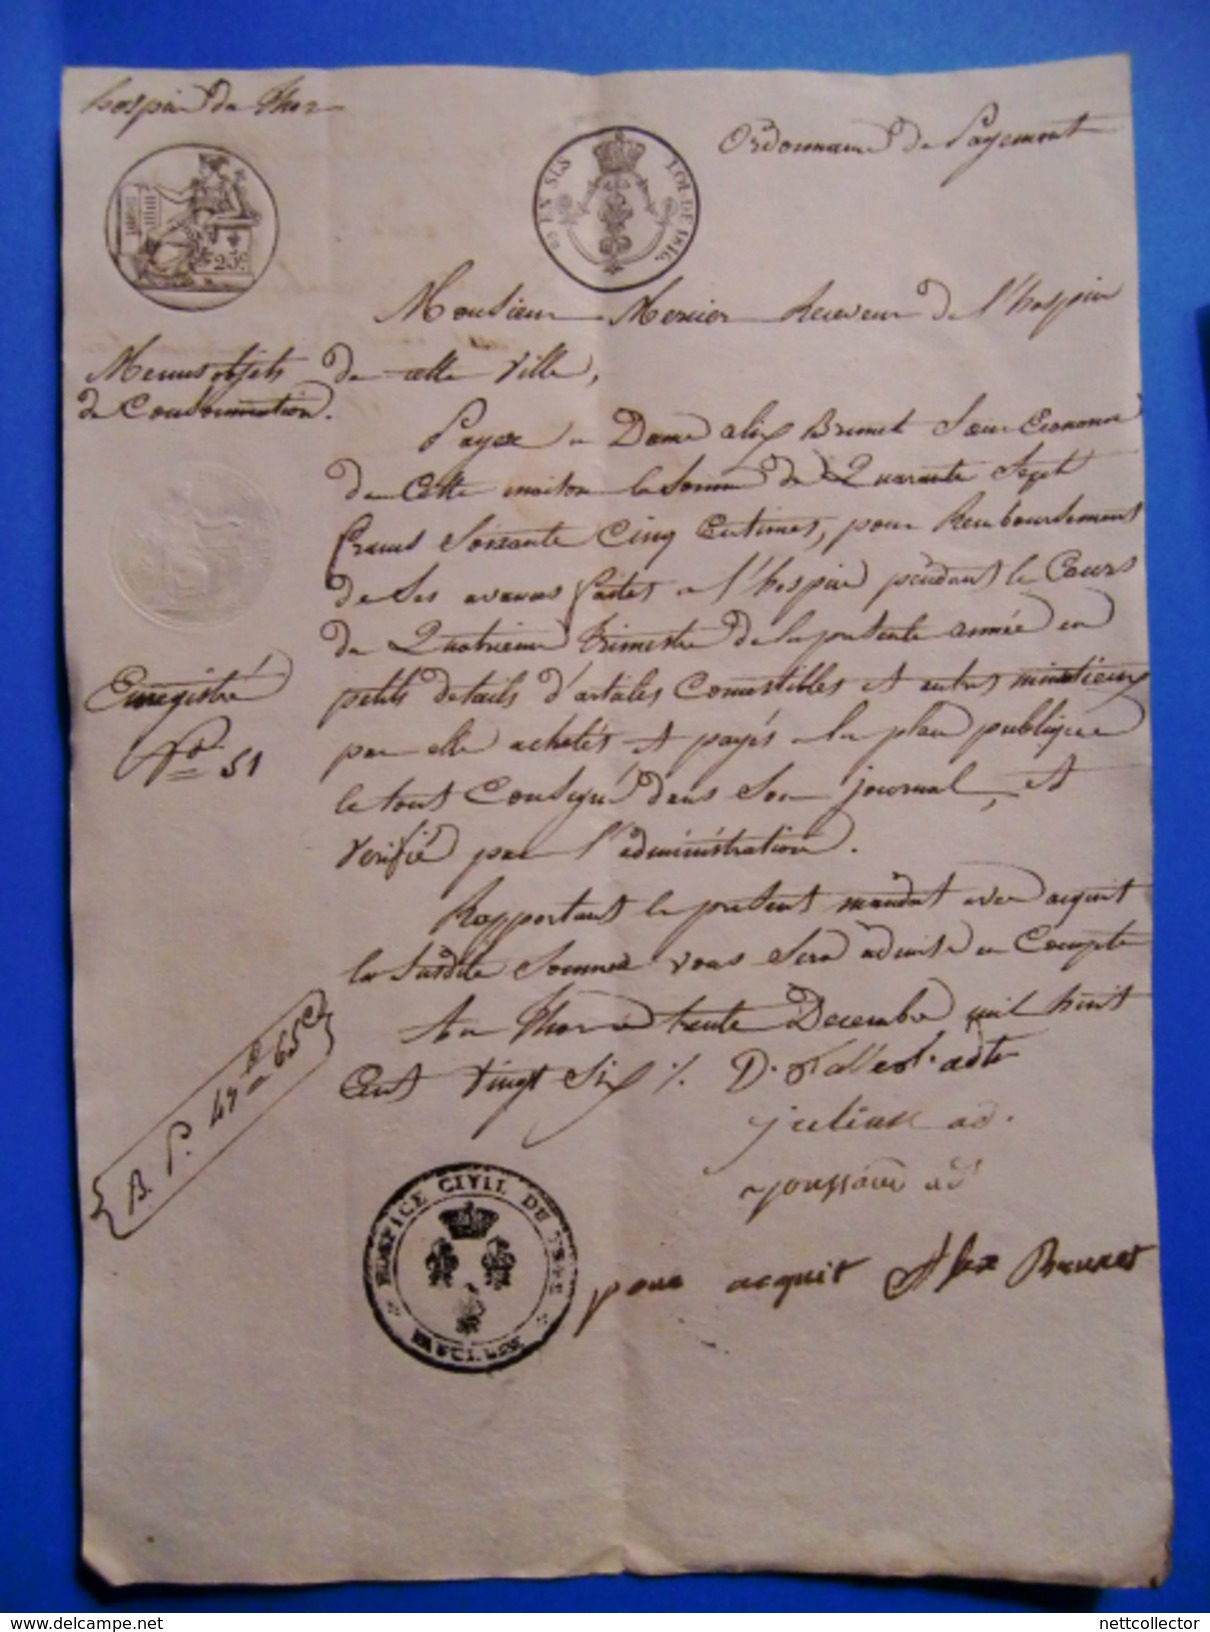 hospice du Thor
Ordonnance de Payement
25 c.
05 EN SUS LOI DE 1816.
Monsieur Mercier Receveur de l'hospice
de cette Ville,
Menus objets
de Consommation.
Payez a Dame alix Brunet Sœur Econome
de Cette maison la Somme de Quarante Sept
francs Soixante Cinq Centimes, pour Remboursement
de Ses avances faites a l'hospice pendant le Cours
du Quatrieme Trimestre de la presente année en
petits details d'articles Comestibles et autres minutieux
par elle achetés et payés a la place publique
le tout Consigné dans Son journal, et
verifié par l'administration.
Enregistré
N.o 51
Rapportant le present mandat avec acquit
la Susdite Somme vous Sera admise en Compte
Au Thor le trente Decembre mil huit
Cent vingt Six
B. P. 47 f 65 c
julian ad.
joussaud ad
HOSPICE CIVIL DU THOR
VAUCLUSE
pour acquit Alix Brunet
delcampe.net
nettcollector